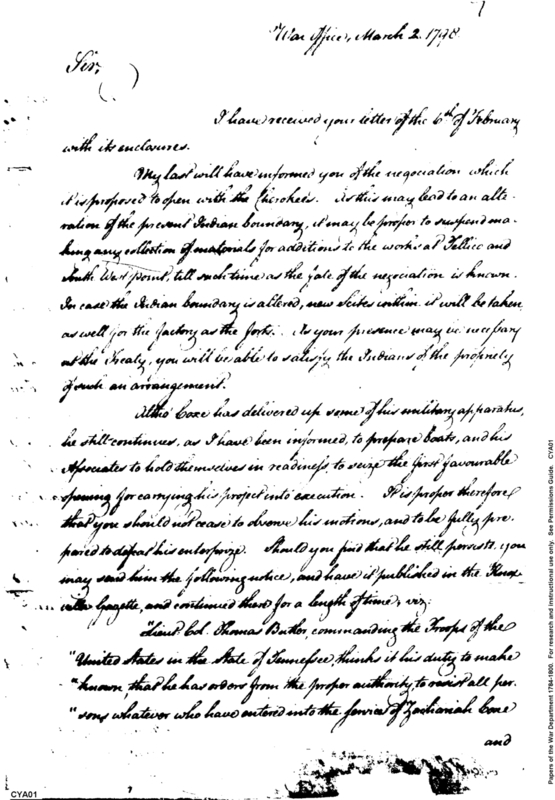 War Office, March 2. 1798
Sir,
I have received your letter of the 6th of February
with its enclosures.
My last will have informed you of the negociation which
it is proposed to open with the Cherokees. As this may lead to an alte-
ration of the present Indian boundary, it may be proper to suspend ma-
king any collection of materials for additions to the works at Tellico and
South West point, till such time as the fate of the negociation is known.
In case the Indian boundary is altered, new Scites within it will be taken
as well for the factory as the forts. As your presence may be necessary
at the Treaty, you will be able to satisfy the Indians of the propriety
of such an arrangement.
Altho' Coxe has delivered up some of his military apparatus,
he still continues, as I have been informed, to prepare boats, and his
Associates to hold themselves in readiness to seize the first favourable
opening for carrying his project into execution. It is proper therefore
that you should not cease to observe his motions, and to be fully pre-
pared to defeat his enterprize. Should you find that he still persists, you
may send him the following notice, and have it published in the Knox-
ville Gazette, and continued there for a length of time, viz.
"Lieut. Col. Thomas Butler, commanding the Troops of the
"United States in the State of Tennessee, thinks it his duty to make
"known, that he has orders from the proper authority, to resist all per-
"sons whatever who have entered into the service of Zachariah Coxe
and
7
CYA01
Papers of the War Department 1784-1800. For research and instructional use only. See Permissions Guide. CYA01